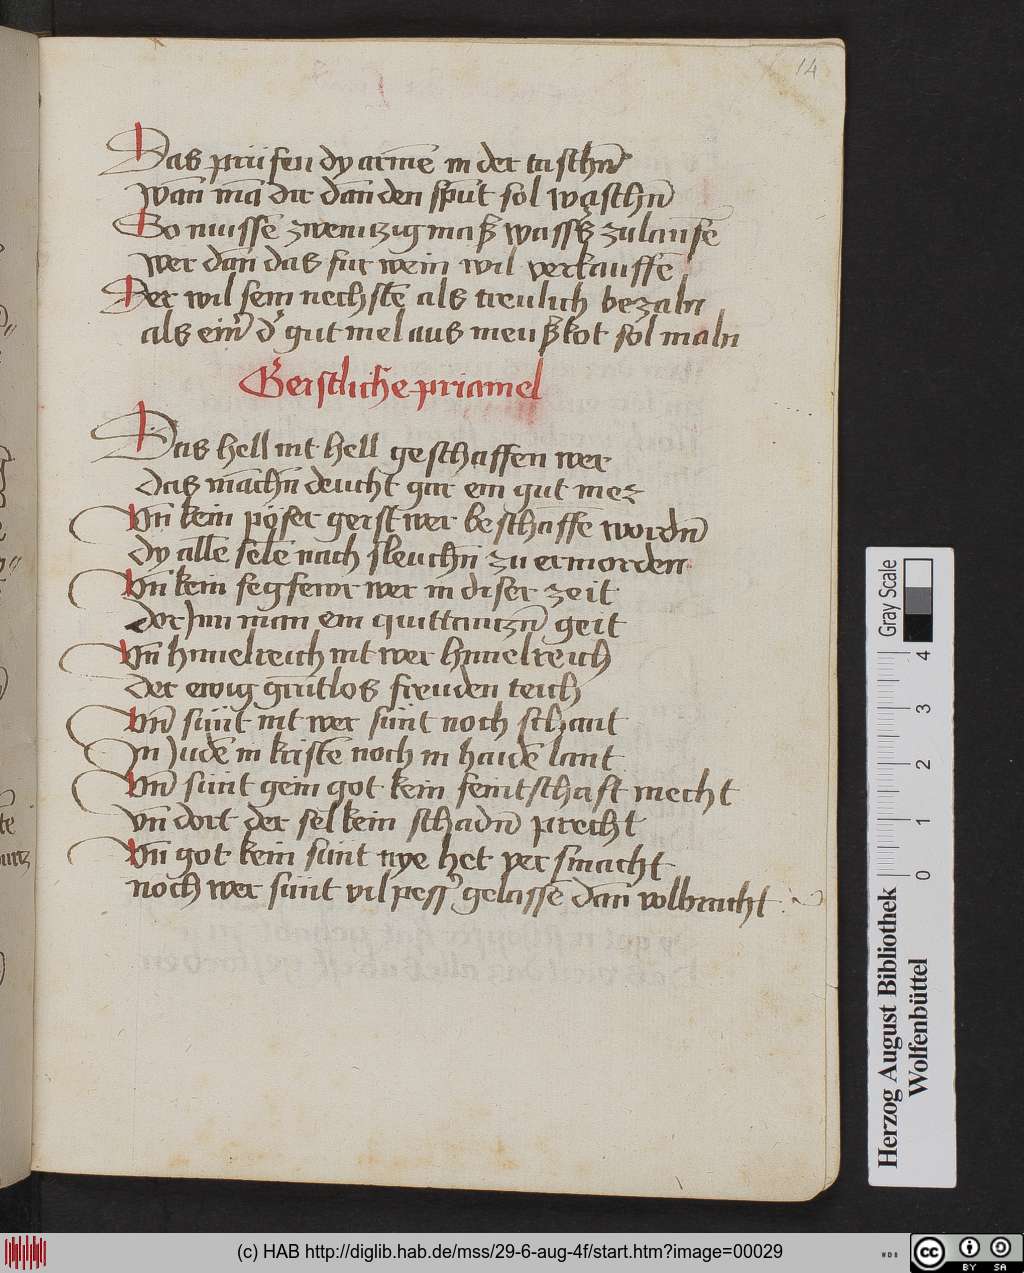 14
Das prüfen dy arme͂ in der taschn͂
wan͂ ma͂ dir dan͂ den spu͂t sol waschn͂
So müsse͂ zweintzig maß wass͛s zulaufe͂
wer dan͂ das fur wein wil verkauffe͂
Der wil sein nechste͂ als treulich bezaln
als ein͛ d͛ gut mel aus meußkot sol maln
Geistliche priamel
Das hell nit hell geschaffen wer
das ma͂chn͂ deucht gar ein gut mer
Vn͂ kein pöser geist wer beschaffe͂ wordn͂
dy alle sele nach sleuchn͂ zu ermorden
Vn͂ kein fegfewr wer in diser zeit
dor Jnn man ein quittantzn͂ geit
Vn͂ hymelreich nit wer hymelreich
der ewig gru͂tlos freuden teich
Vn͂ sünt nit wer sünt noch schant
Jn Jude͂ in kriste͂ noch in haide͂ lant
Vn͂ sünt gein got kein feintschaft mecht
vn͂ dort der sel kein schadn͂ precht
Vn͂ got kein sünt nye het versmacht
noch wer sünt vil pess͛ gelasse͂ dan͂ volbracht
Herzog August Bibliothek
Wolfenbüttel
0 1 2 3 4
Gray Scale
(c) HAB http://diglib.hab.de/mss/29-6-aug-4f/start.htm?image=00029
WDB
cc BY SA